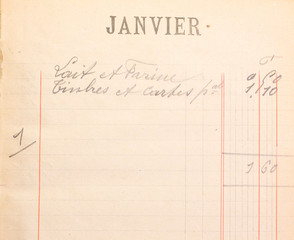 JANVIER
F
Lait et Farine 0 50
Timbres et cartes p^al 1 10
1/
1 60